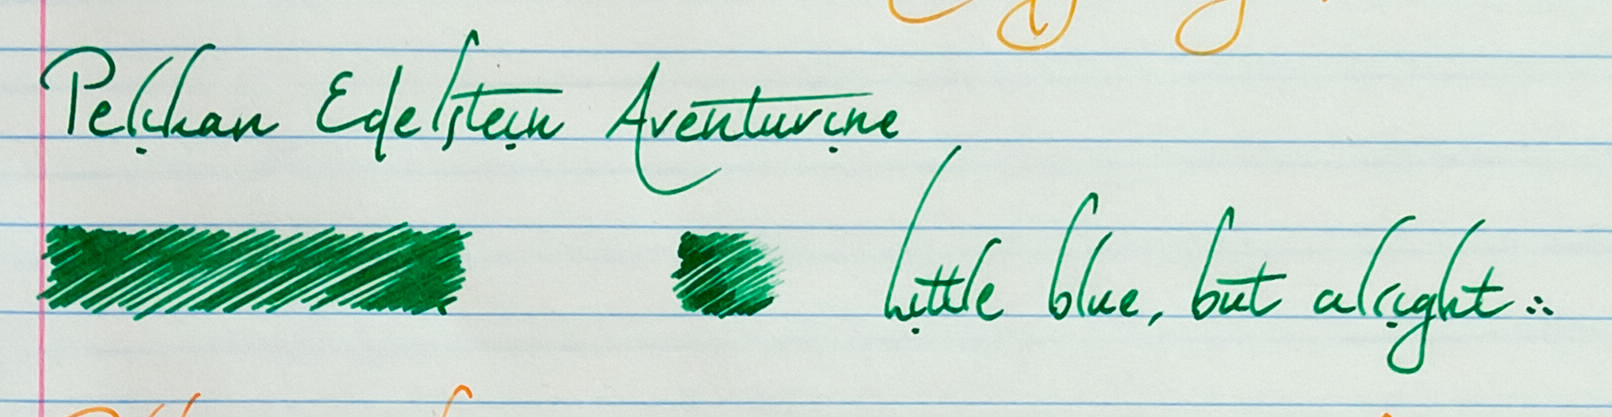 Pelikan Edelstein Aventurine
Little blue, but alright ∴